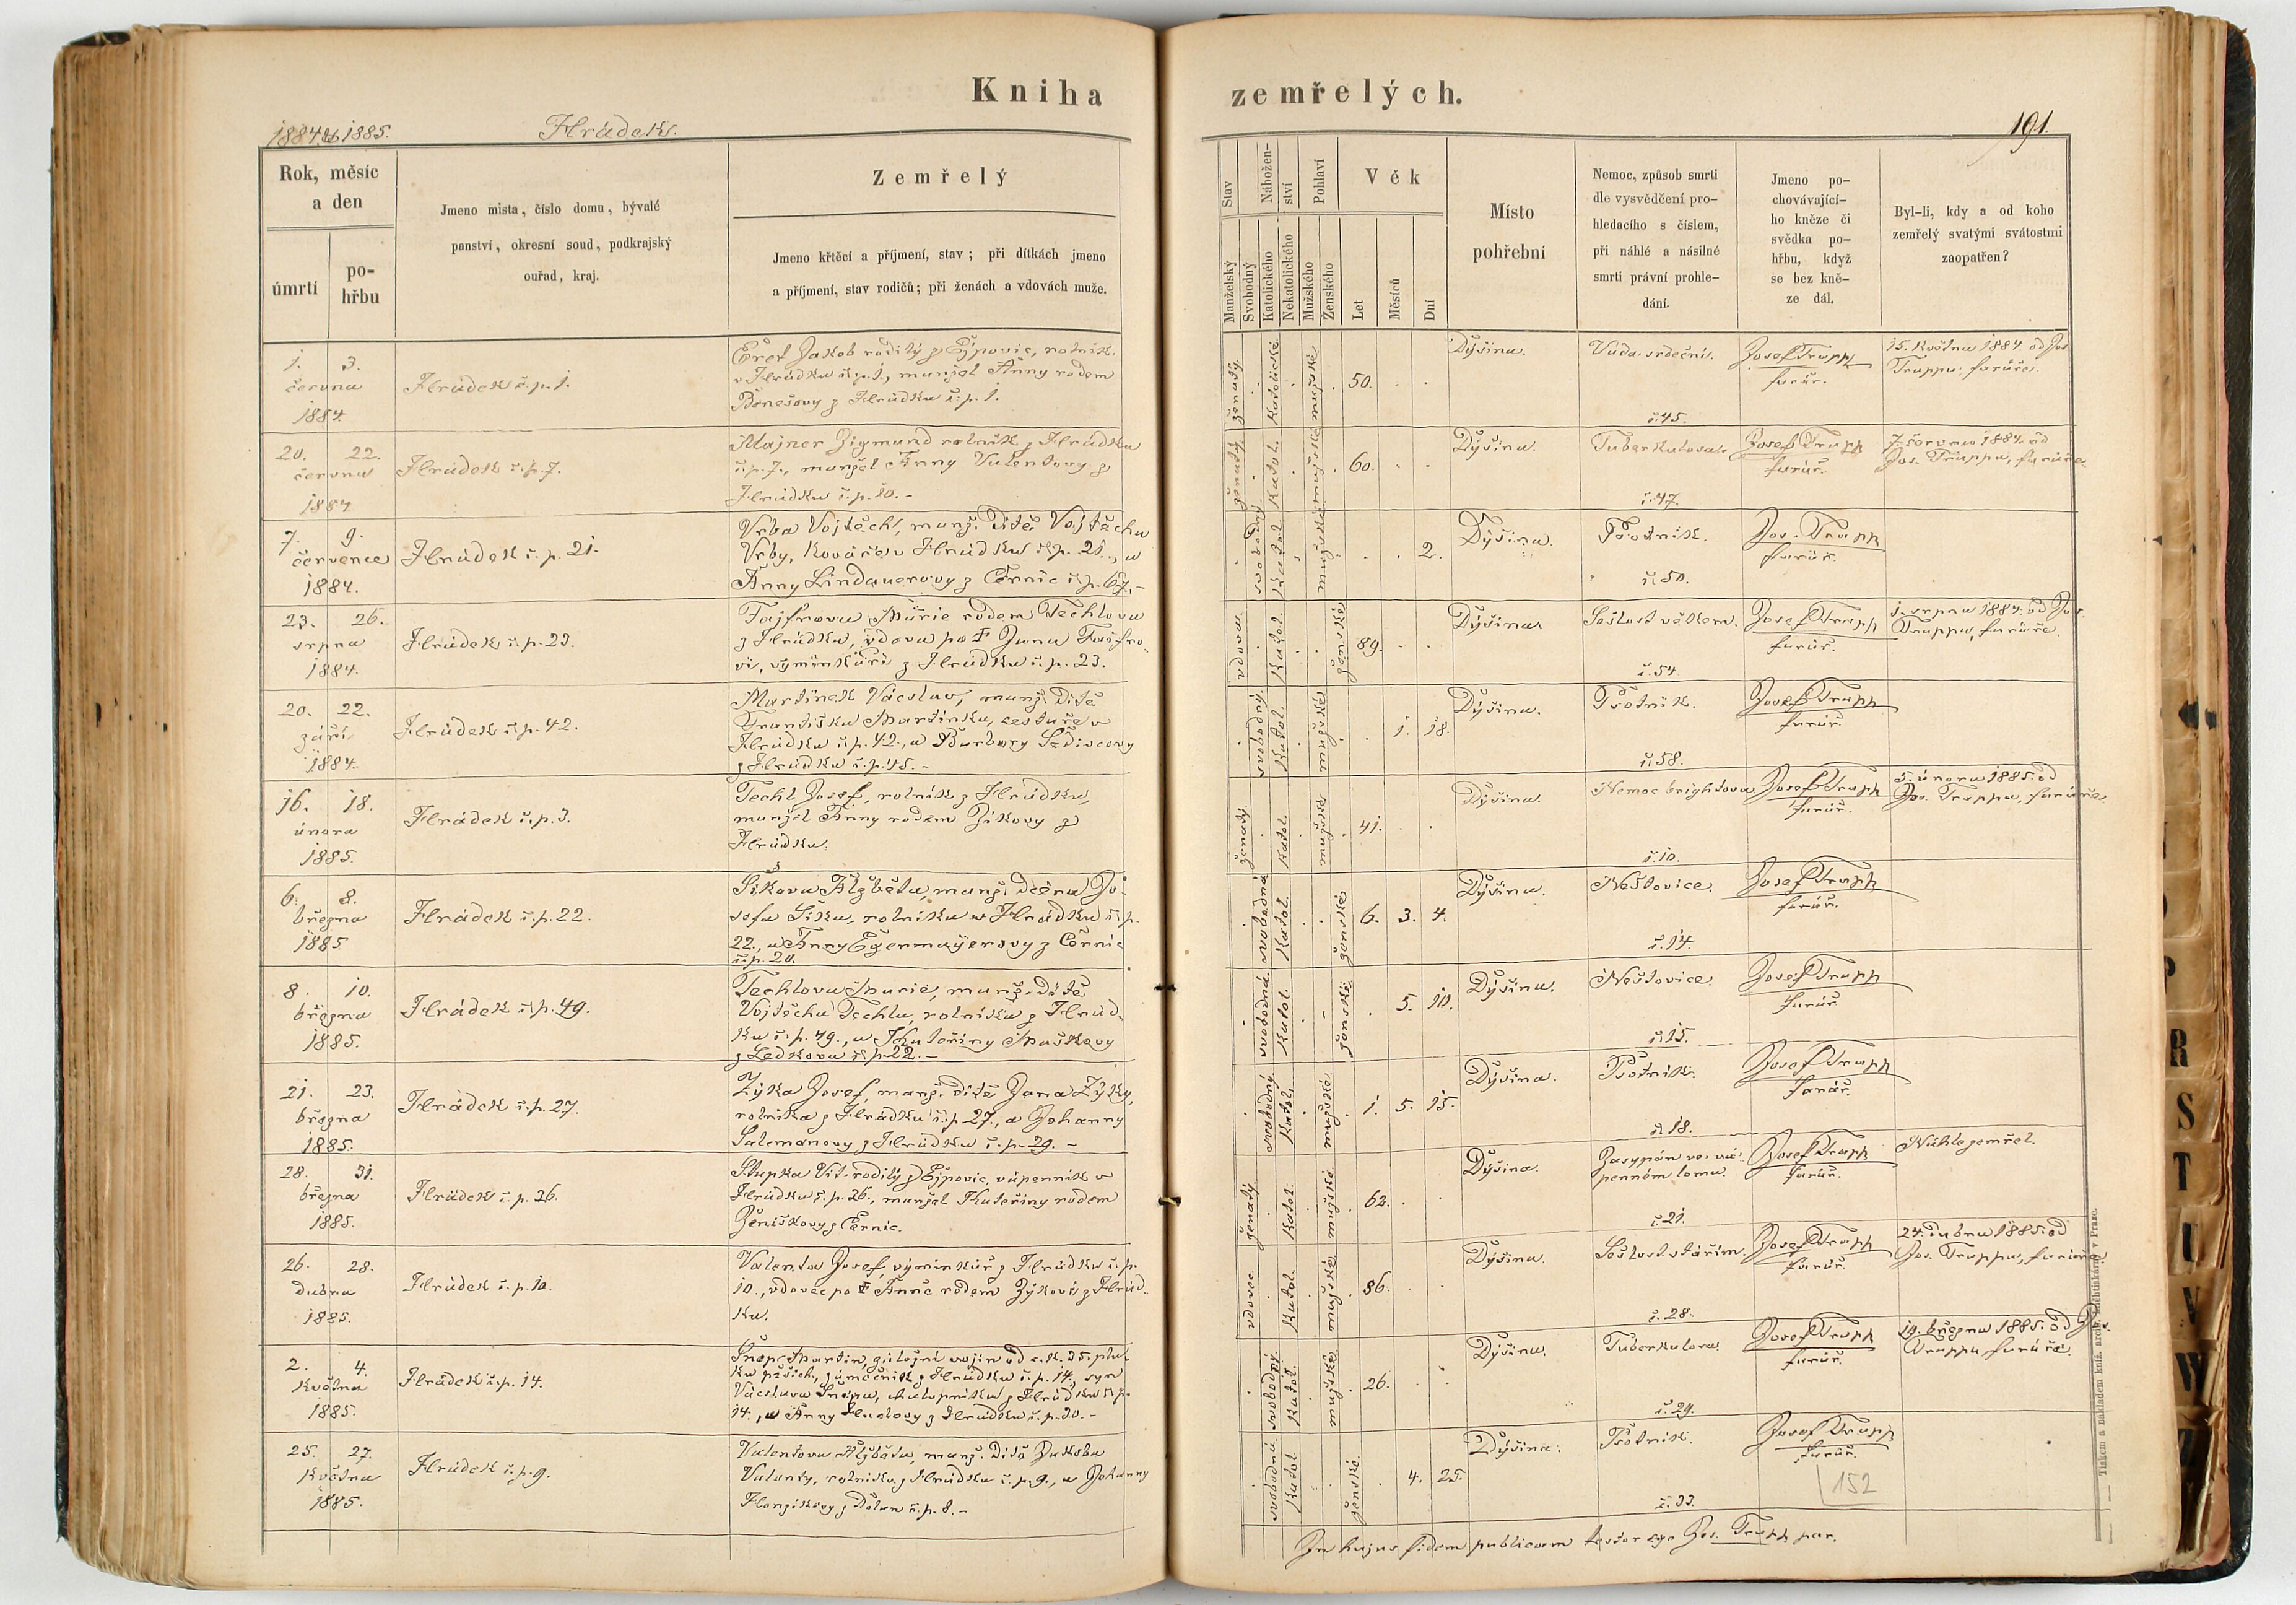 Kniha
zemřelých.
1884. & 1885.
Hrádek.
191.
Rok, měsíc
a den
úmrtí
po-
hřbu
Jmeno mista, číslo domu, bývalé
panství, okresní soud, podkrajský
ouřad, kraj.
Zemřelý
Jmeno křtěcí a příjmení, stav; při dítkách jmeno
a příjmení, stav rodičů; při ženách a vdovách muže.
Stav
Manželský
Svobodný
Nábožen-
ství
Katolického
Nekatolického
Pohlaví
Mužského
Ženského
Věk
Let
Měsíců
Dní
Místo
pohřební
Nemoc, způsob smrti
dle vysvědčení pro-
hledacího s číslem,
při náhlé a násilné
smrti právní prohle-
dání.
Jmeno po-
chovávající-
ho kněze či
svědka po-
hřbu, když
se bez kně-
ze dál.
Byl-li, kdy a od koho
zemřelý svatými svátostmi
zaopatřen?
1. 3.
června
1884.
Hrádek č.p. 1.
Jakob rodilý z Ejpovic, rolník
v Hrádku č.p. 1., manžel Anny rodem
Benešovy z Hrádku č.p. 1.
ženatý
katolické
mužské
50.
Dýšina.
Vada srdeční.
č. 45.
Josef Trapp
farář.
15. května 1884. od Jos.
Trappa, faráře.
20. 22.
června
1884
Hrádek č.p. 7.
Majner Zigmund rolník z Hrádku
č.p. 7., manžel Anny Valentovy z
Hrádku č.p. 10. -
ženatý
katol.
mužské
60.
Dýšina.
Tuberkulosa.
č. 47.
Josef Trapp
farář.
7. června 1884. od
Jos. Trappa, faráře.
7. 9.
července
1884.
Hrádek č.p. 21.
Vrba Vojtěch, manž. dítě Vojtěcha
Vrby, kováře v Hrádku č.p. 21., a
Anny Lindauerovy z Černic č.p. 67. -
svobodný
katol.
mužské
2.
Dýšina.
Psotník.
č. 50.
Jos. Trapp
farář.
23. 26.
srpna
1884.
Hrádek č.p. 23.
Fajfrova Marie rodem Techlova
z Hrádku, vdova po † Janu Fajfro-
vi, výminkáři z Hrádku č.p. 23.
vdova
katol.
ženské
89.
Dýšina.
Sešlost věkem.
č. 54.
Josef Trapp
farář.
1. srpna 1884. od Jos.
Trappa, faráře.
20. 22.
září
1884.
Hrádek č.p. 42.
Martínek Václav, manž. dítě
Františka Martínka, cestáře v
Hrádku č.p. 42., a Barbory Sedivcovy
z Hrádku č.p. 45. -
svobodný
katol.
mužské
1. 18.
Dýšina.
Psotník.
č. 58.
Josef Trapp
farář.
16. 18.
února
1885.
Hrádek č.p. 3.
Techl Josef, rolník z Hrádku,
manžel Anny rodem Zíkovy z
Hrádku.
ženatý
katol.
mužské
41.
Dýšina.
Nemoc brightova
č. 10.
Josef Trapp
farář.
5. února 1885. od
Jos. Trappa, faráře.
6. 8.
března
1885
Hrádek č.p. 22.
Šíkova Alžběta, manž. dcera Jo-
sefa Šíka, rolníka v Hrádku č.p.
22., a Anny Egermayerovy z Černic
č.p. 20.
svobodná
katol.
ženské
6. 3. 4.
Dýšina.
Neštovice.
č. 14.
Josef Trapp
farář.
8. 10.
března
1885.
Hrádek č.p. 49.
Techlova Marie, manž. dítě
Vojtěcha Techla, rolníka z Hrád-
ku č.p. 49., a Kateřiny Maškovy
z Ledkova č.p. 22. -
svobodná
katol.
ženské
5. 10.
Dýšina.
Neštovice.
č. 15.
Josef Trapp
farář.
21. 23.
března
1885.
Hrádek č.p. 27.
Zýka Josef, manž. dítě Jana Zýky,
rolníka z Hrádku č.p. 27., a Johanny
Salemanovy z Hrádku č.p. 29. -
svobodný
katol.
mužské
1. 5. 15.
Dýšina.
Psotník.
č. 18.
Josef Trapp
farář.
28. 31.
března
1885.
Hrádek č.p. 26.
Stupka Vít rodilý z Ejpovic, vápenník v
Hrádku č.p. 26., manžel Kateřiny rodem
Ženíškovy z Černic.
ženatý
katol.
mužské
62.
Dýšina.
Zasypán ve vá-
penném lomu.
č. 21.
Josef Trapp
farář.
Náhle zemřel.
26. 28.
dubna
1885.
Hrádek č.p. 10.
Valenta Josef, výminkář z Hrádku č.p.
10., vdovec po † Anně rodem Zýkové z Hrád-
ku.
vdovec
katol.
mužské
86.
Dýšina.
Sešlost stářím.
č. 28.
Josef Trapp
farář.
24. dubna 1885. od
Jos. Trappa, faráře
2. 4.
května
1885.
Hrádek č.p. 14.
Šnop Martin, záložní vojín od c.k. 35. plu-
ku pěších, zámečník z Hrádku č.p. 14., syn
Václava Šnopa, chalupníka z Hrádku č.p.
14., a Anny z Hrádku č.p. 30. -
svobodný
katol.
mužské
26.
Dýšina.
Tuberkulosa.
č. 29.
Josef Trapp
farář.
19. března 1885. od Jos.
Trappa, faráře.
25. 27.
května
1885.
Hrádek č.p. 9.
Valentova Alžběta, manž. dítě Jakoba
Valenty, rolníka z Hrádku č.p. 9., a Johanny
z Dolan č.p. 8. -
svobodná
katol.
ženské
4. 25.
Dýšina.
Psotník.
č. 33.
Josef Trapp
farář.
152
In hujus fidem publicam testor ego Jos. Trapp par.
Tiskem a nákladem kníž. arcib. knihtiskárny v Praze.
R
S
T
U
V
W